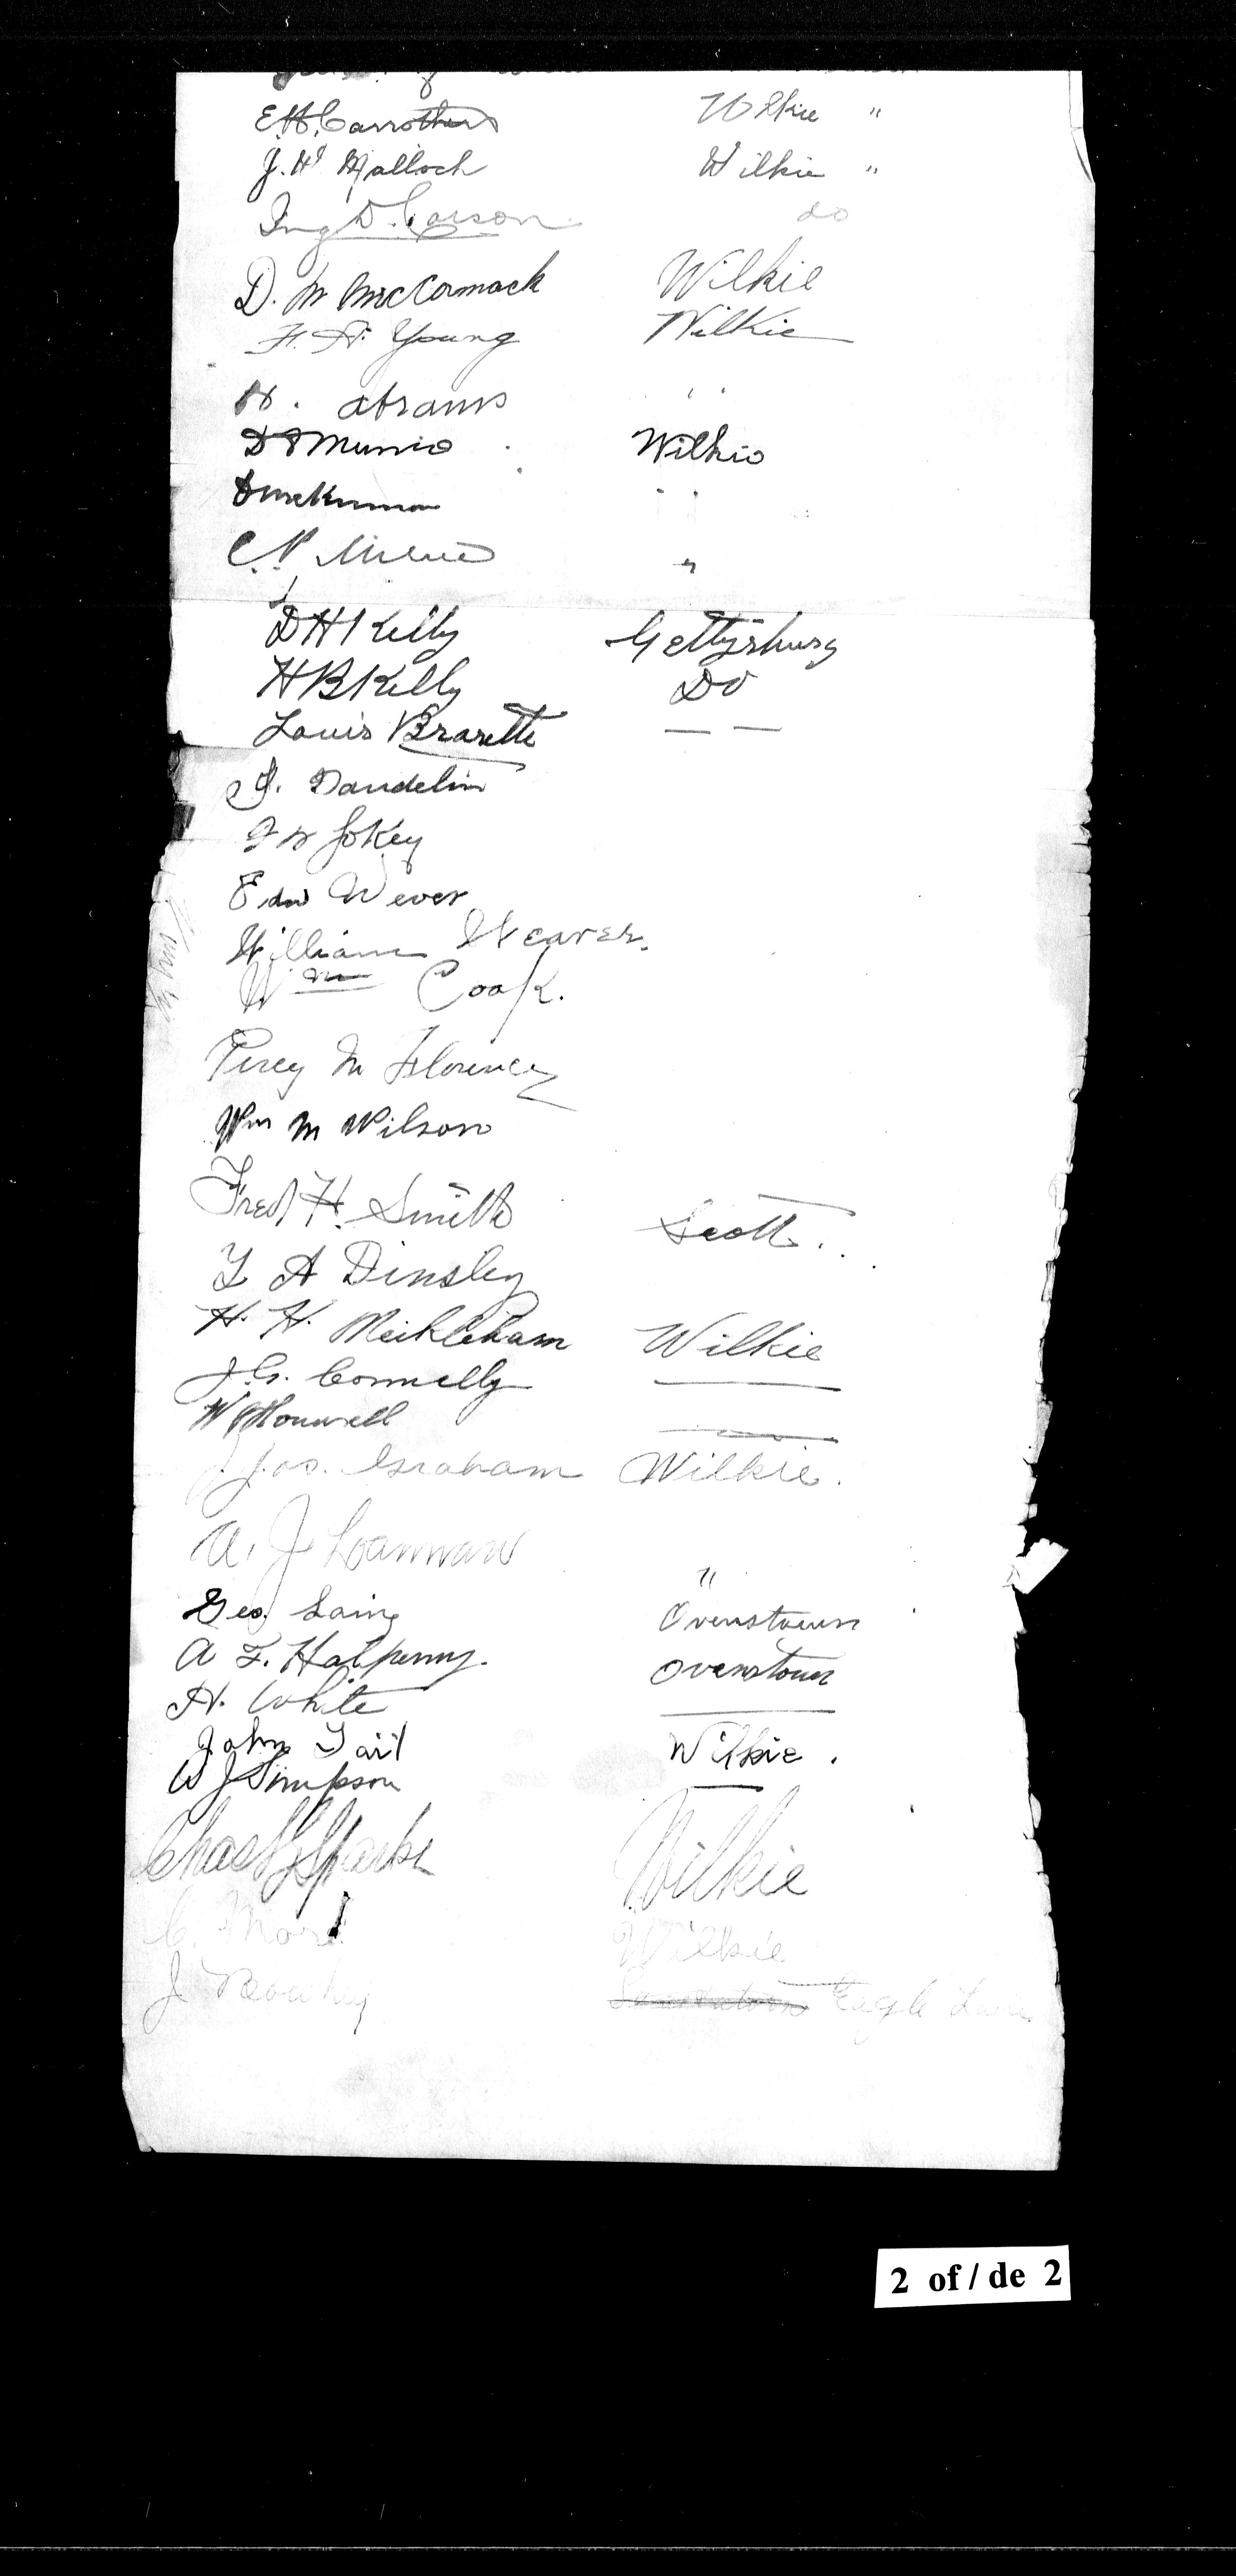 E.H. Carrothers Wilkie "
J. H. Malloch Wilkie "
Ing D. Carson do
D. M McCormack Wilkie
F. A. Young Wilkie
H. Abrams " 
D F Munro Wilkie
D McKinnon "
C. P. Milne "
D H Kelly Gettysburg
H B Kelly Do
Louis Brasette — —
J. Dandelin
Jokey
Edw Wever
William Weaver.
Wm Cook.
Percy M Florence
Wm M Wilson
Fred H. Smith Scott.
A Dinsley
H. H. Meikleham Wilkie
J. G. Connelly ——
W Honwell ——
Jas. Graham Wilkie.
A. J. "
Geo. Laing Ovenstown
A F. Halpenny. Ovenstown
H. White ——
John Tait Wilkie.
W J Simpson —
Chas Sparks Wilkie
C. Wilkie
J Eagle
2 of / de 2